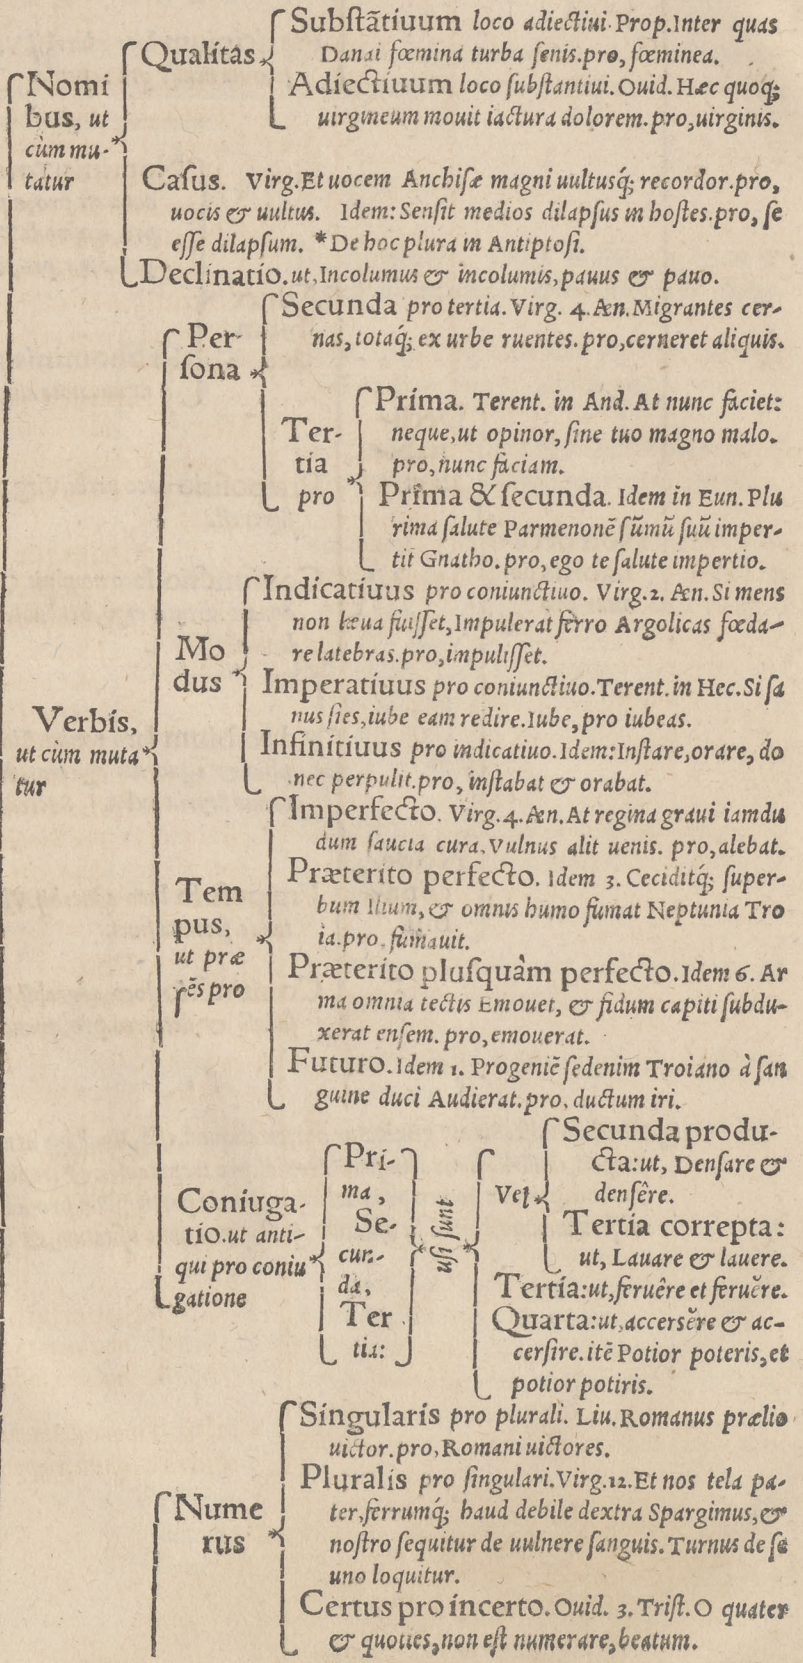 Nomi
bus, ut
cùm mu-
tatur
Qualitas
Substãtiuum loco adiectiui. Prop. Inter quas
Danai fœmina turba senis. pro, fœminea.
Adiectiuum loco substantiui. Ouid. Hæc quoq;
uirgineum mouit iactura dolorem. pro, uirginis.
Casus. Virg. Et uocem Anchisæ magni uultusq́; recordor. pro,
uocis & uultus. Idem: Sensit medios dilapsus in hostes. pro, se
esse dilapsum. *De hoc plura in Antiptosi.
Declinatio. ut, Incolumus & incolumis, pauus & pauo.
Verbis,
ut cùm muta
tur
Per-
sona
Secunda pro tertia. Virg. 4. Æn. Migrantes cer-
nas, totaq́; ex urbe ruentes. pro, cerneret aliquis.
Ter-
tia
pro
Prima. Terent. in And. At nunc faciet:
neque, ut opinor, sine tuo magno malo.
pro, nunc faciam.
Prima & secunda. Idem in Eun. Plu
rima salute Parmenonē sũmũ suũ imper-
tit Gnatho. pro, ego te salute impertio.
Mo
dus
Indicatiuus pro coniunctiuo. Virg. 2. Æn. Si mens
non læua fuisset, Impulerat ferro Argolicas fœda-
re latebras. pro, impulisset.
Imperatiuus pro coniunctiuo. Terent. in Hec. Si sa
nus sies, iube eam redire. Iube, pro iubeas.
Infinitiuus pro indicatiuo. Idem: Instare, orare, do
nec perpulit. pro, instabat & orabat.
Tem
pus,
ut præ
sēs pro
Imperfecto. Virg. 4. Æn. At regina graui iamdu
dum saucia cura. Vulnus alit uenis. pro, alebat.
Præterito perfecto. Idem 3. Ceciditq́; super-
bum Ilium, & omnis humo fumat Neptunia Tro
ia. pro, fumauit.
Præterito plusquàm perfecto. Idem 6. Ar
ma omnia tectis Emouet, & fidum capiti subdu-
xerat ensem. pro, emouerat.
Futuro. Idem 1. Progeniē sed enim Troiano à san
guine duci Audierat. pro, ductum iri.
Coniuga-
tio. ut anti-
qui pro coniu
gatione
Pri-
ma,
Se-
cun-
da,
Ter
tia:
usi sunt
Vel
Secunda produ-
cta: ut, Densare &
densêre.
Tertia correpta:
ut, Lauare & lauere.
Tertia: ut, feruêre et feruĕre.
Quarta: ut, accersĕre & ac-
cersire. itē Potior poteris, et
potior potiris.
Nume
rus
Singularis pro plurali. Liu. Romanus prælio
uictor. pro, Romani uictores.
Pluralis pro singulari. Virg. 12. Et nos tela pa-
ter, ferrumq́; haud debile dextra Spargimus, &
nostro sequitur de uulnere sanguis. Turnus de se
uno loquitur.
Certus pro incerto. Ouid. 3. Trist. O quater
& quoties, non est numerare, beatum.